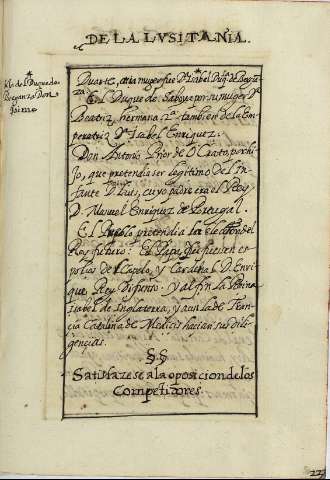 DE LA LVSITANIA.
hija del Duque de
Bragança Don
Jaime
Duarte, cuia muger fue Dª Isabel Duqª de Bragã
za.
El Duque de Saboya por su muger Dª
Beatriz, hermana 2ª tambien de la Em
peratriz Dª Isabel Enriquez.
Don Antonio Prior de O Crato, por hi
jo, que pretendia ser legitimo del In
fante D. Luis, cuyo padre era el Rey
D. Manuel Enriquez de Portugal.
El Pueblo pretendia la election del
Rey futuro: El Papa, que fuesen es
polios del Capelo, y Cardenal D. Enri
que Rey Difunto: y al fin la Reina
Isabel de Inglaterra, y aun la de Fran
cia Catalina de Medicis hacian sus dili
gençias.
§.§
Satisfazese a la oposicion de los
Competidores.